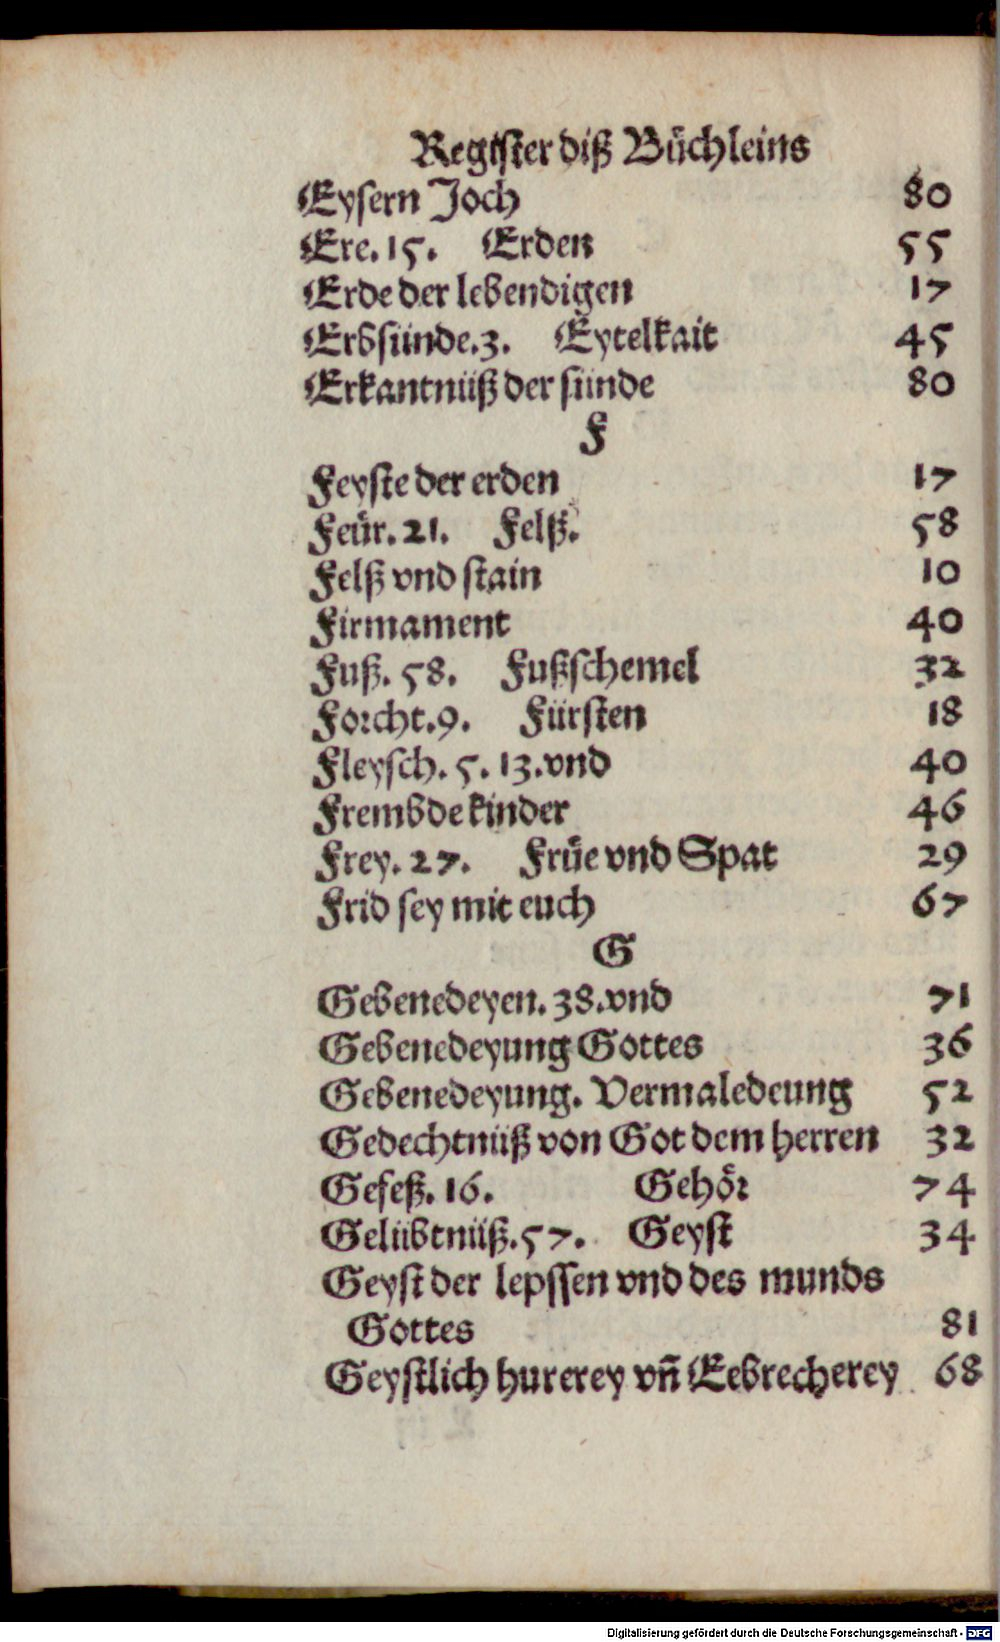 Register diß Bůchleins
Eysern Joch 80
Ere. 15. Erden 55
Erde der lebendigen 17
Erbsünde. 3. Eytelkait 45
Erkantnüß der sünde 80
F
Feyste der erden 17
Feür. 21. Felß. 58
Felß vnd stain 10
Firmament 40
Fuß. 58. Fußschemel 32
Forcht. 9. Fürsten 18
Fleysch. 5. 13. vnd 40
Frembde kinder 46
Frey. 27. Frůe vnd Spat 29
Frid sey mit euch 67
G
Gebenedeyen. 38. vnd 71
Gebenedeyung Gottes 36
Gebenedeyung. Vermaledeung 52
Gedechtnüß von Got dem herren 32
Geseß. 16. Gehör 74
Gelübtnüß. 57. Geyst 34
Geyst der lepssen vnd des munds
Gottes 81
Geystlich hurerey vñ Eebrecherey 68
Digitalisierung gefördert durch die Deutsche Forschungsgemeinschaft - DFG